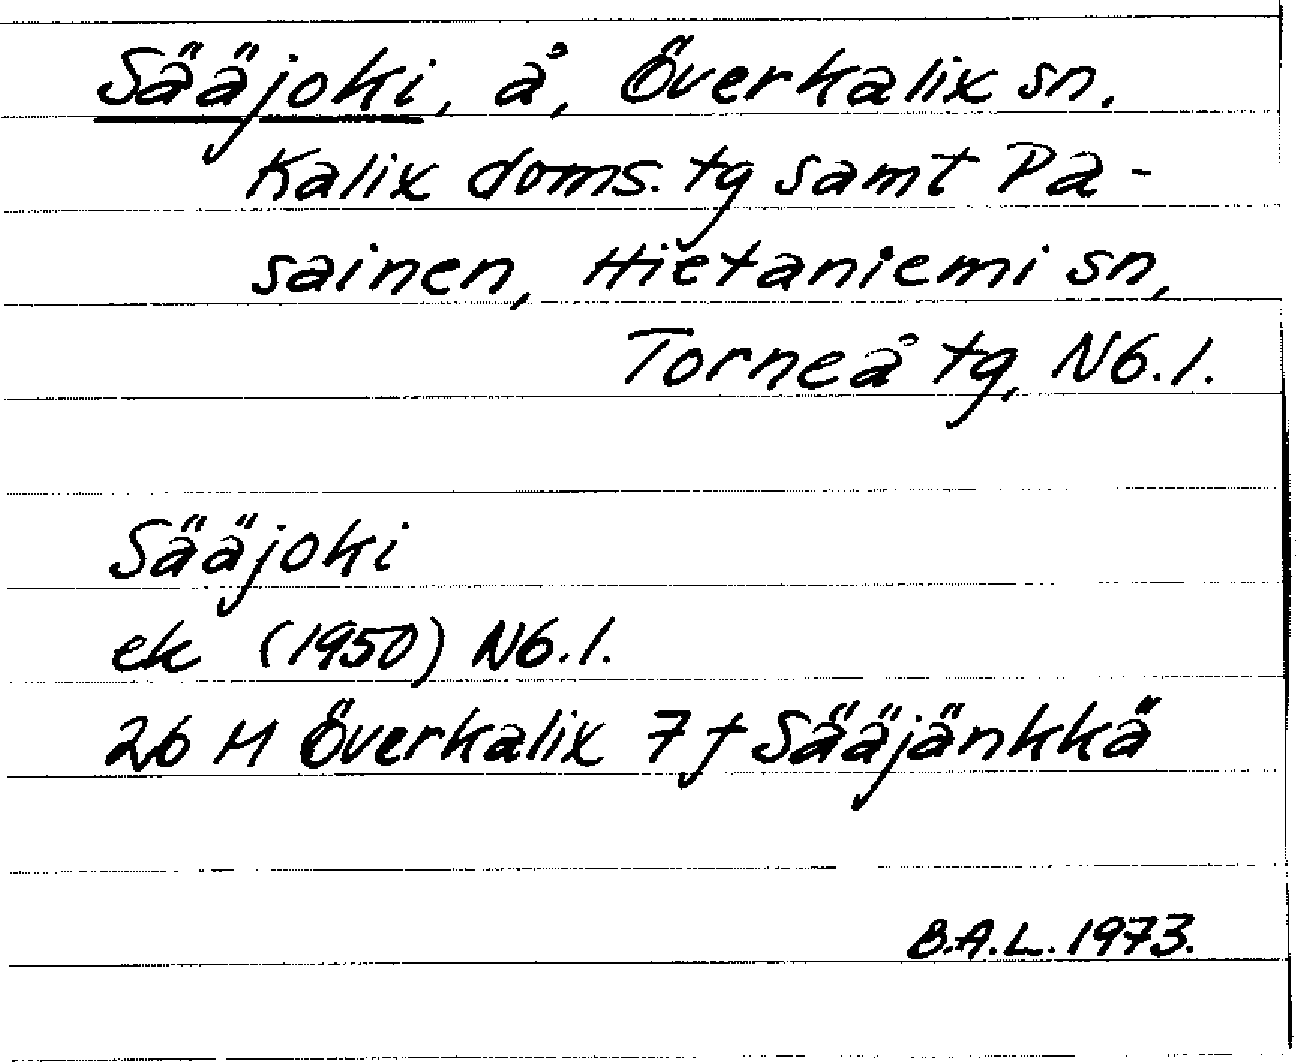 Sääjoki, å, Överkalix sn.
Kalix doms. tg samt Pa-
sainen, Hietaniemi sn,
Torneå tg, Nб.l.
Sääjoki
ek (1950) Nб.l.
26 M Överkalix 7f Sääjänkkä
B.A.L. 1973.